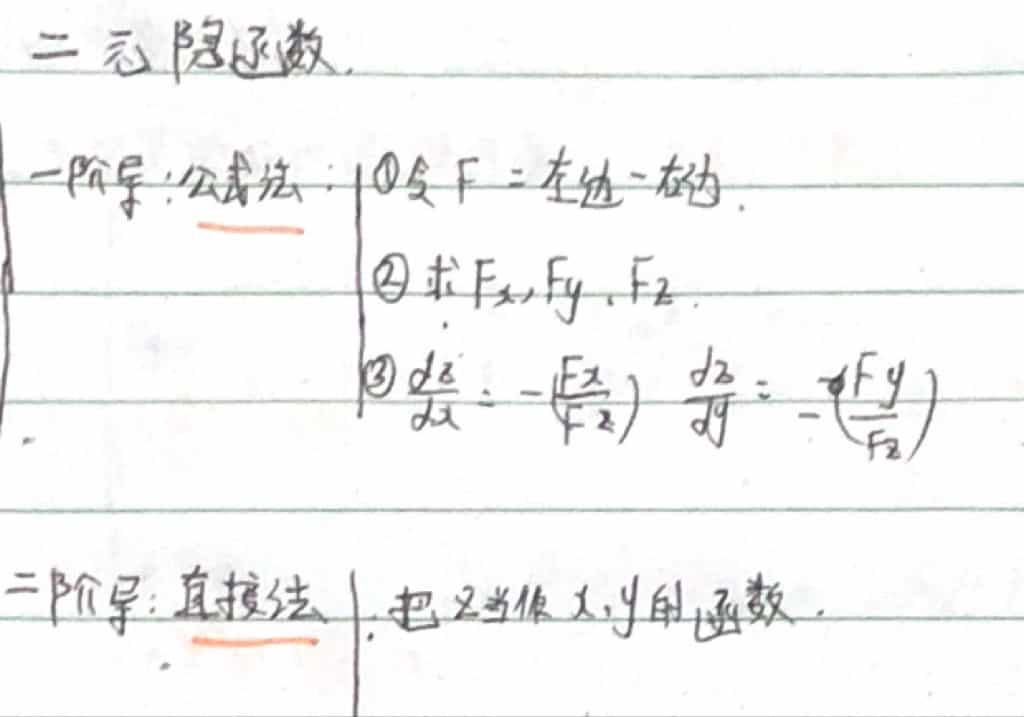 二元隐函数.
一阶导:公式法: ①令 F = 左边-右边.
② 求 Fx, Fy、Fz.
③ dz/dx = -(Fx/Fz) dz/dy = -(Fy/Fz)
二阶导:直接法 . 把 z 当做 x, y 的函数.